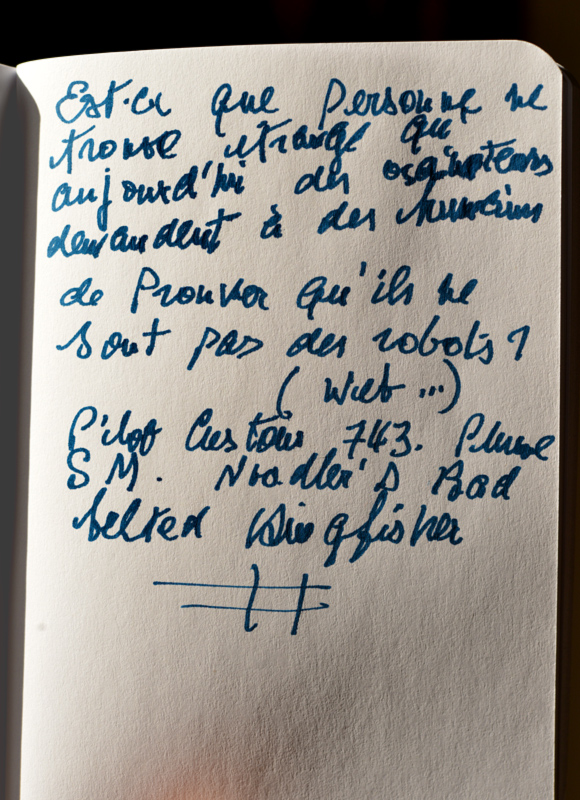 Est-ce que Personne ne
trouve étrange qu
aujourd'hui des
demandent à des humains
de Prouver qu'ils ne
sont pas des robots ?
( Web ...)
Pilot Custom 743. Plume
SM. Noodler's Bad
belted Kingfisher